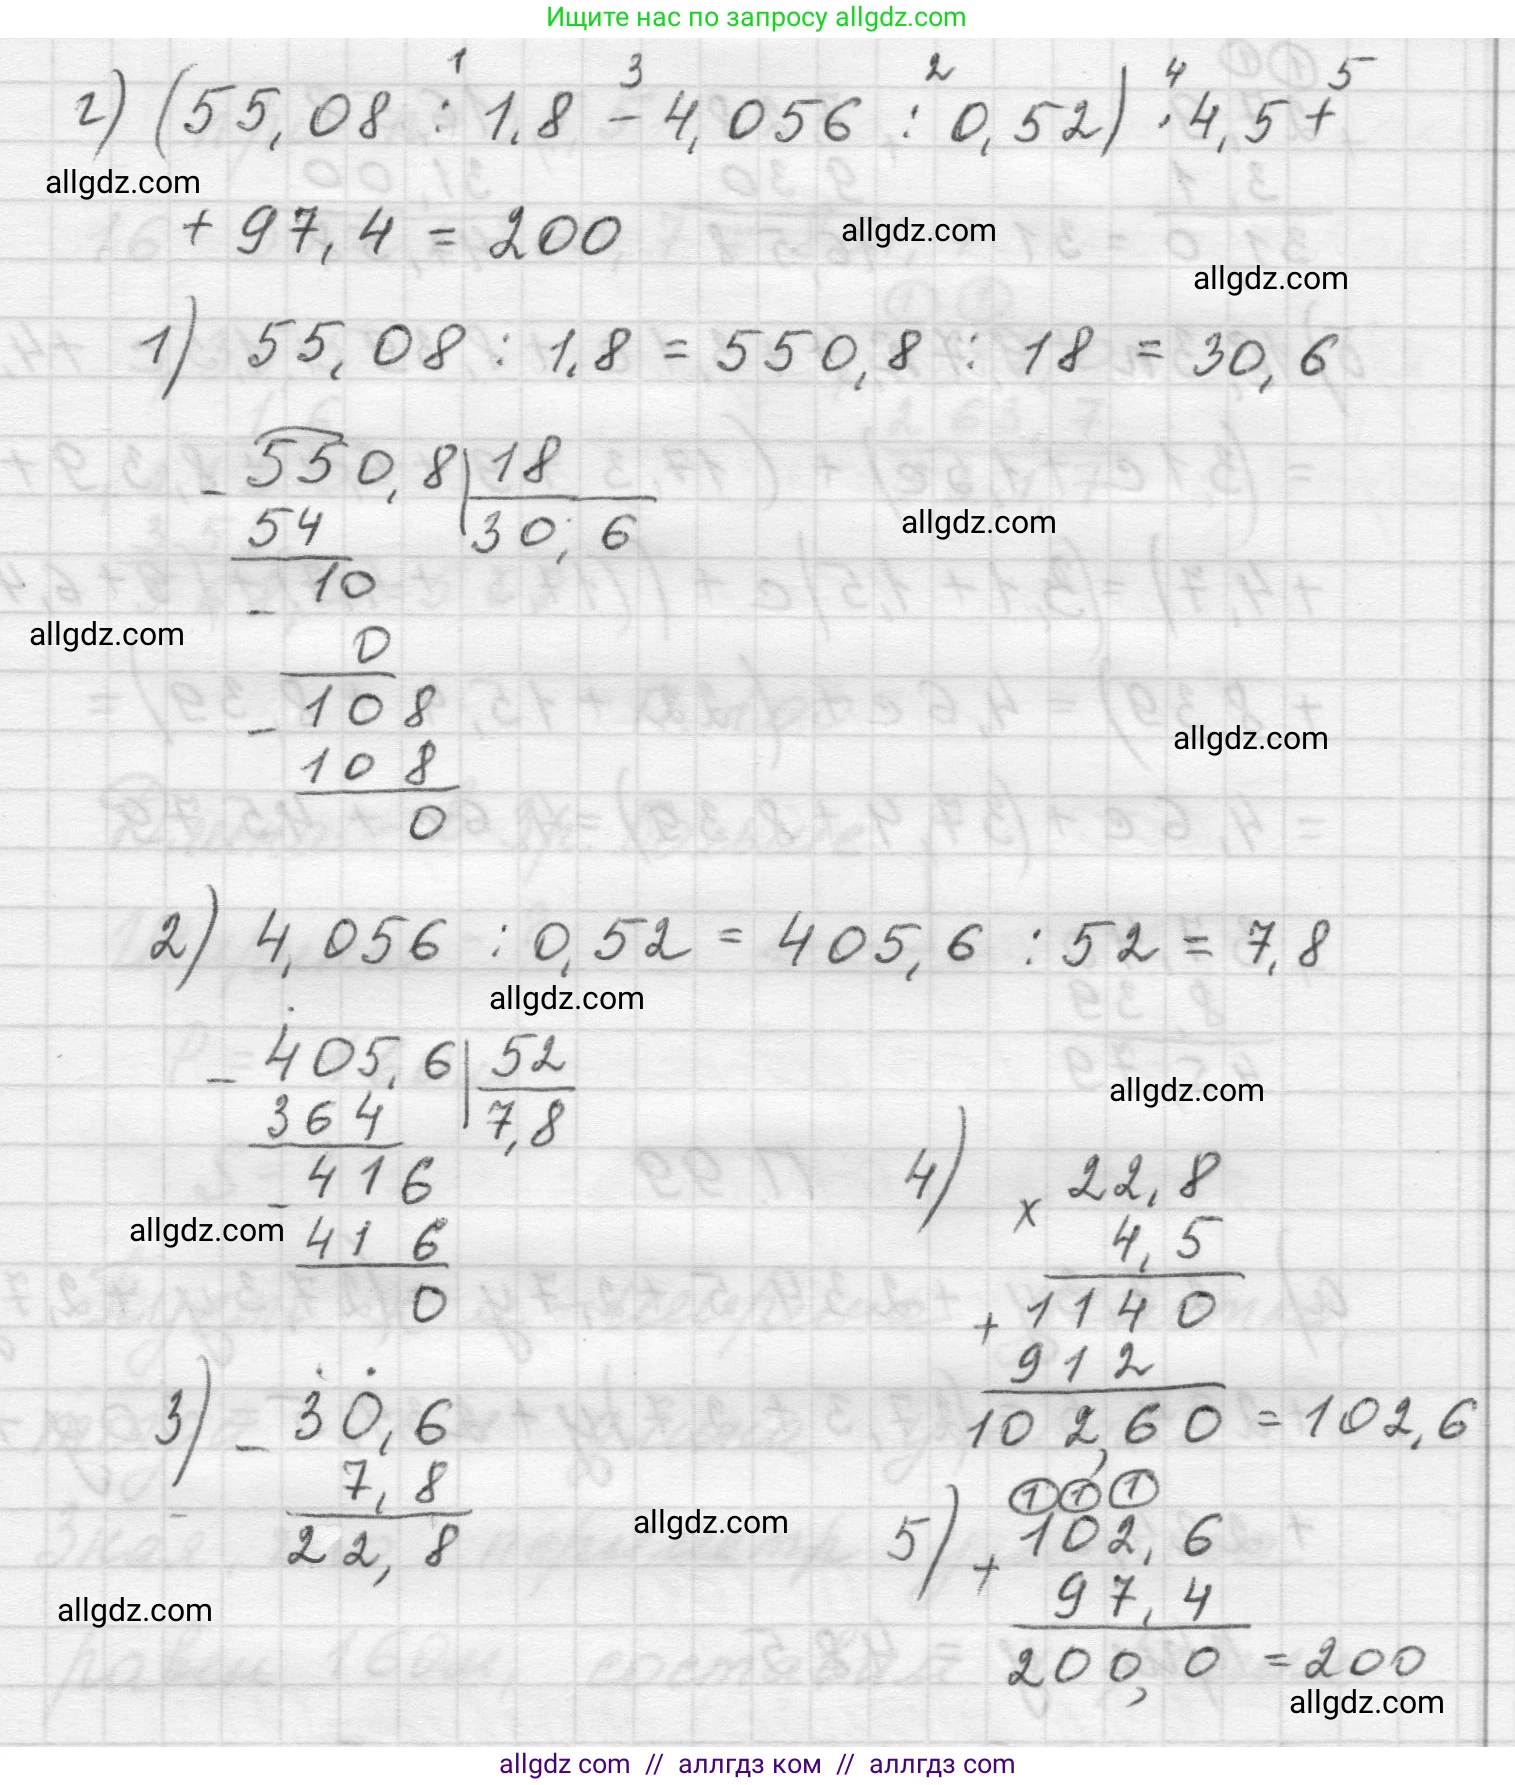 Ищите нас по запросу allgdz.com
г) (55,08 : 1,8 - 4,056 : 0,52) · 4,5 +
1 3 2 4 5
allgdz.com
+ 97,4 = 200
allgdz.com
allgdz.com
1) 55,08 : 1,8 = 550,8 : 18 = 30,6
- 550,8 | 18
54 30,6
allgdz.com
- 10
allgdz.com
0
- 108
allgdz.com
108
0
2) 4,056 : 0,52 = 405,6 : 52 = 7,8
allgdz.com
- 405,6 | 52
364 7,8
allgdz.com
- 416
allgdz.com
416
0
3) - 30,6
7,8
22,8
allgdz.com
allgdz.com
4) x 22,8
4,5
+ 1140
912
102,60 = 102,6
1 1 1
5) + 102,6
97,4
200,0 = 200
allgdz.com
allgdz com // аллгдз ком // аллгдз com